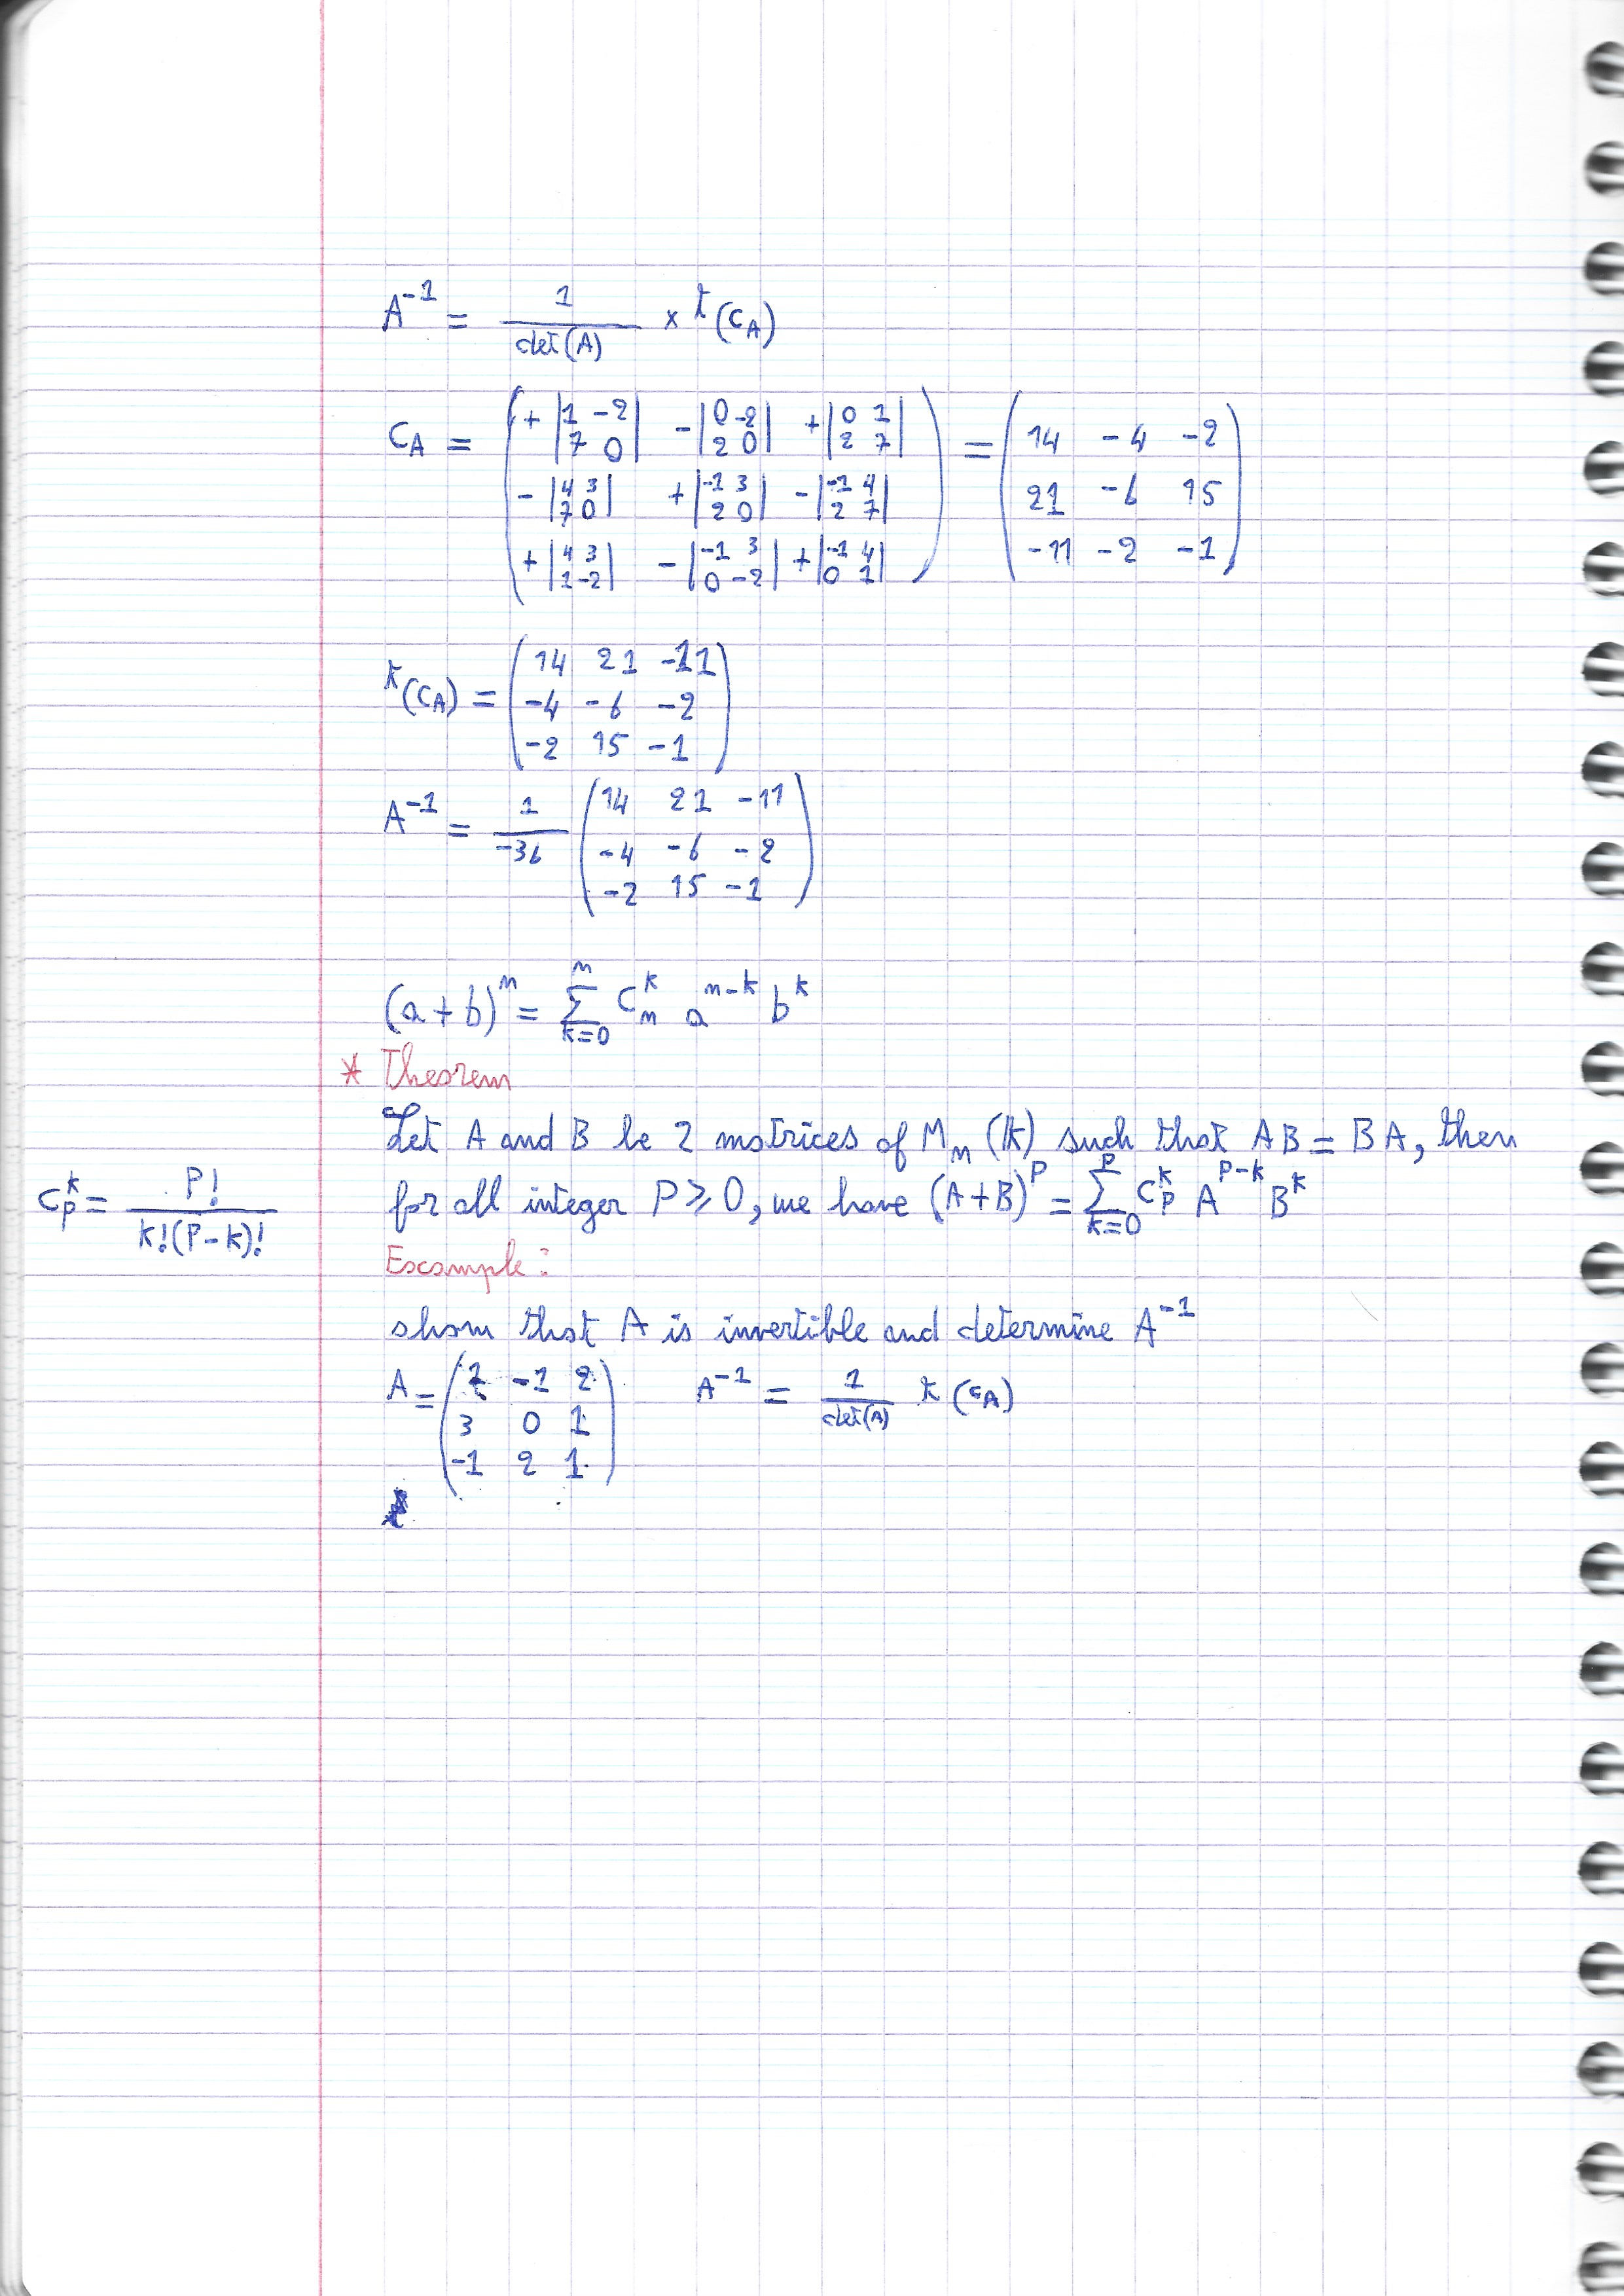 A⁻¹ = 1/det(A) × ᵗ(C_A)
C_A = ( +|1 -2; 7 0| -|0 -2; 2 0| +|0 1; 2 7| ; -|4 3; 7 0| +|-1 3; 2 0| -|-1 4; 2 7| ; +|4 3; 1 -2| -|-1 3; 0 -2| +|-1 4; 0 1| ) = ( 14 -4 -2 ; 21 -6 15 ; -11 -2 -1 )
ᵗ(C_A) = ( 14 21 -11 ; -4 -6 -2 ; -2 15 -1 )
A⁻¹ = 1/-36 ( 14 21 -11 ; -4 -6 -2 ; -2 15 -1 )
(a+b)ⁿ = ∑_{k=0}^{n} C_n^k a^{n-k} b^k
* Theorem
Let A and B be 2 matrices of M_n(K) such that AB = BA, then
for all integer P ≥ 0, we have (A+B)^P = ∑_{k=0}^{P} C_P^k A^{P-k} B^k
C_P^k = P!/k!(P-k)!
Example:
show that A is invertible and determine A⁻¹
A = ( 1 -1 2 ; 3 0 1 ; -1 2 1 ) A⁻¹ = 1/det(A) ᵗ(C_A)